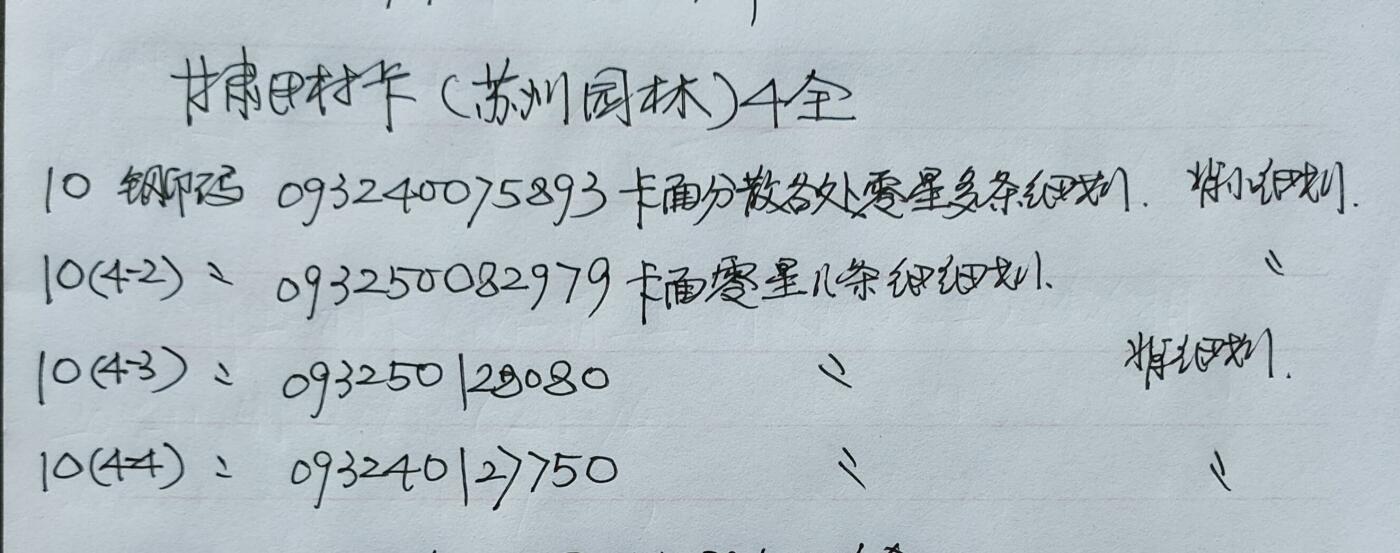 甘肃田村卡(苏州园林)4全
10 钢印码 093240075893 卡面分散各处零星多条细划. 背小细划.
10(4-2) 〃 093250082979 卡面零星几条细细划. 〃
10(4-3) 〃 093250128080 〃 背细划.
10(4-4) 〃 093240127750 〃 〃